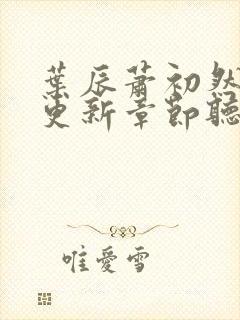 葉辰蕭初然
更新章節聽
唯愛雪